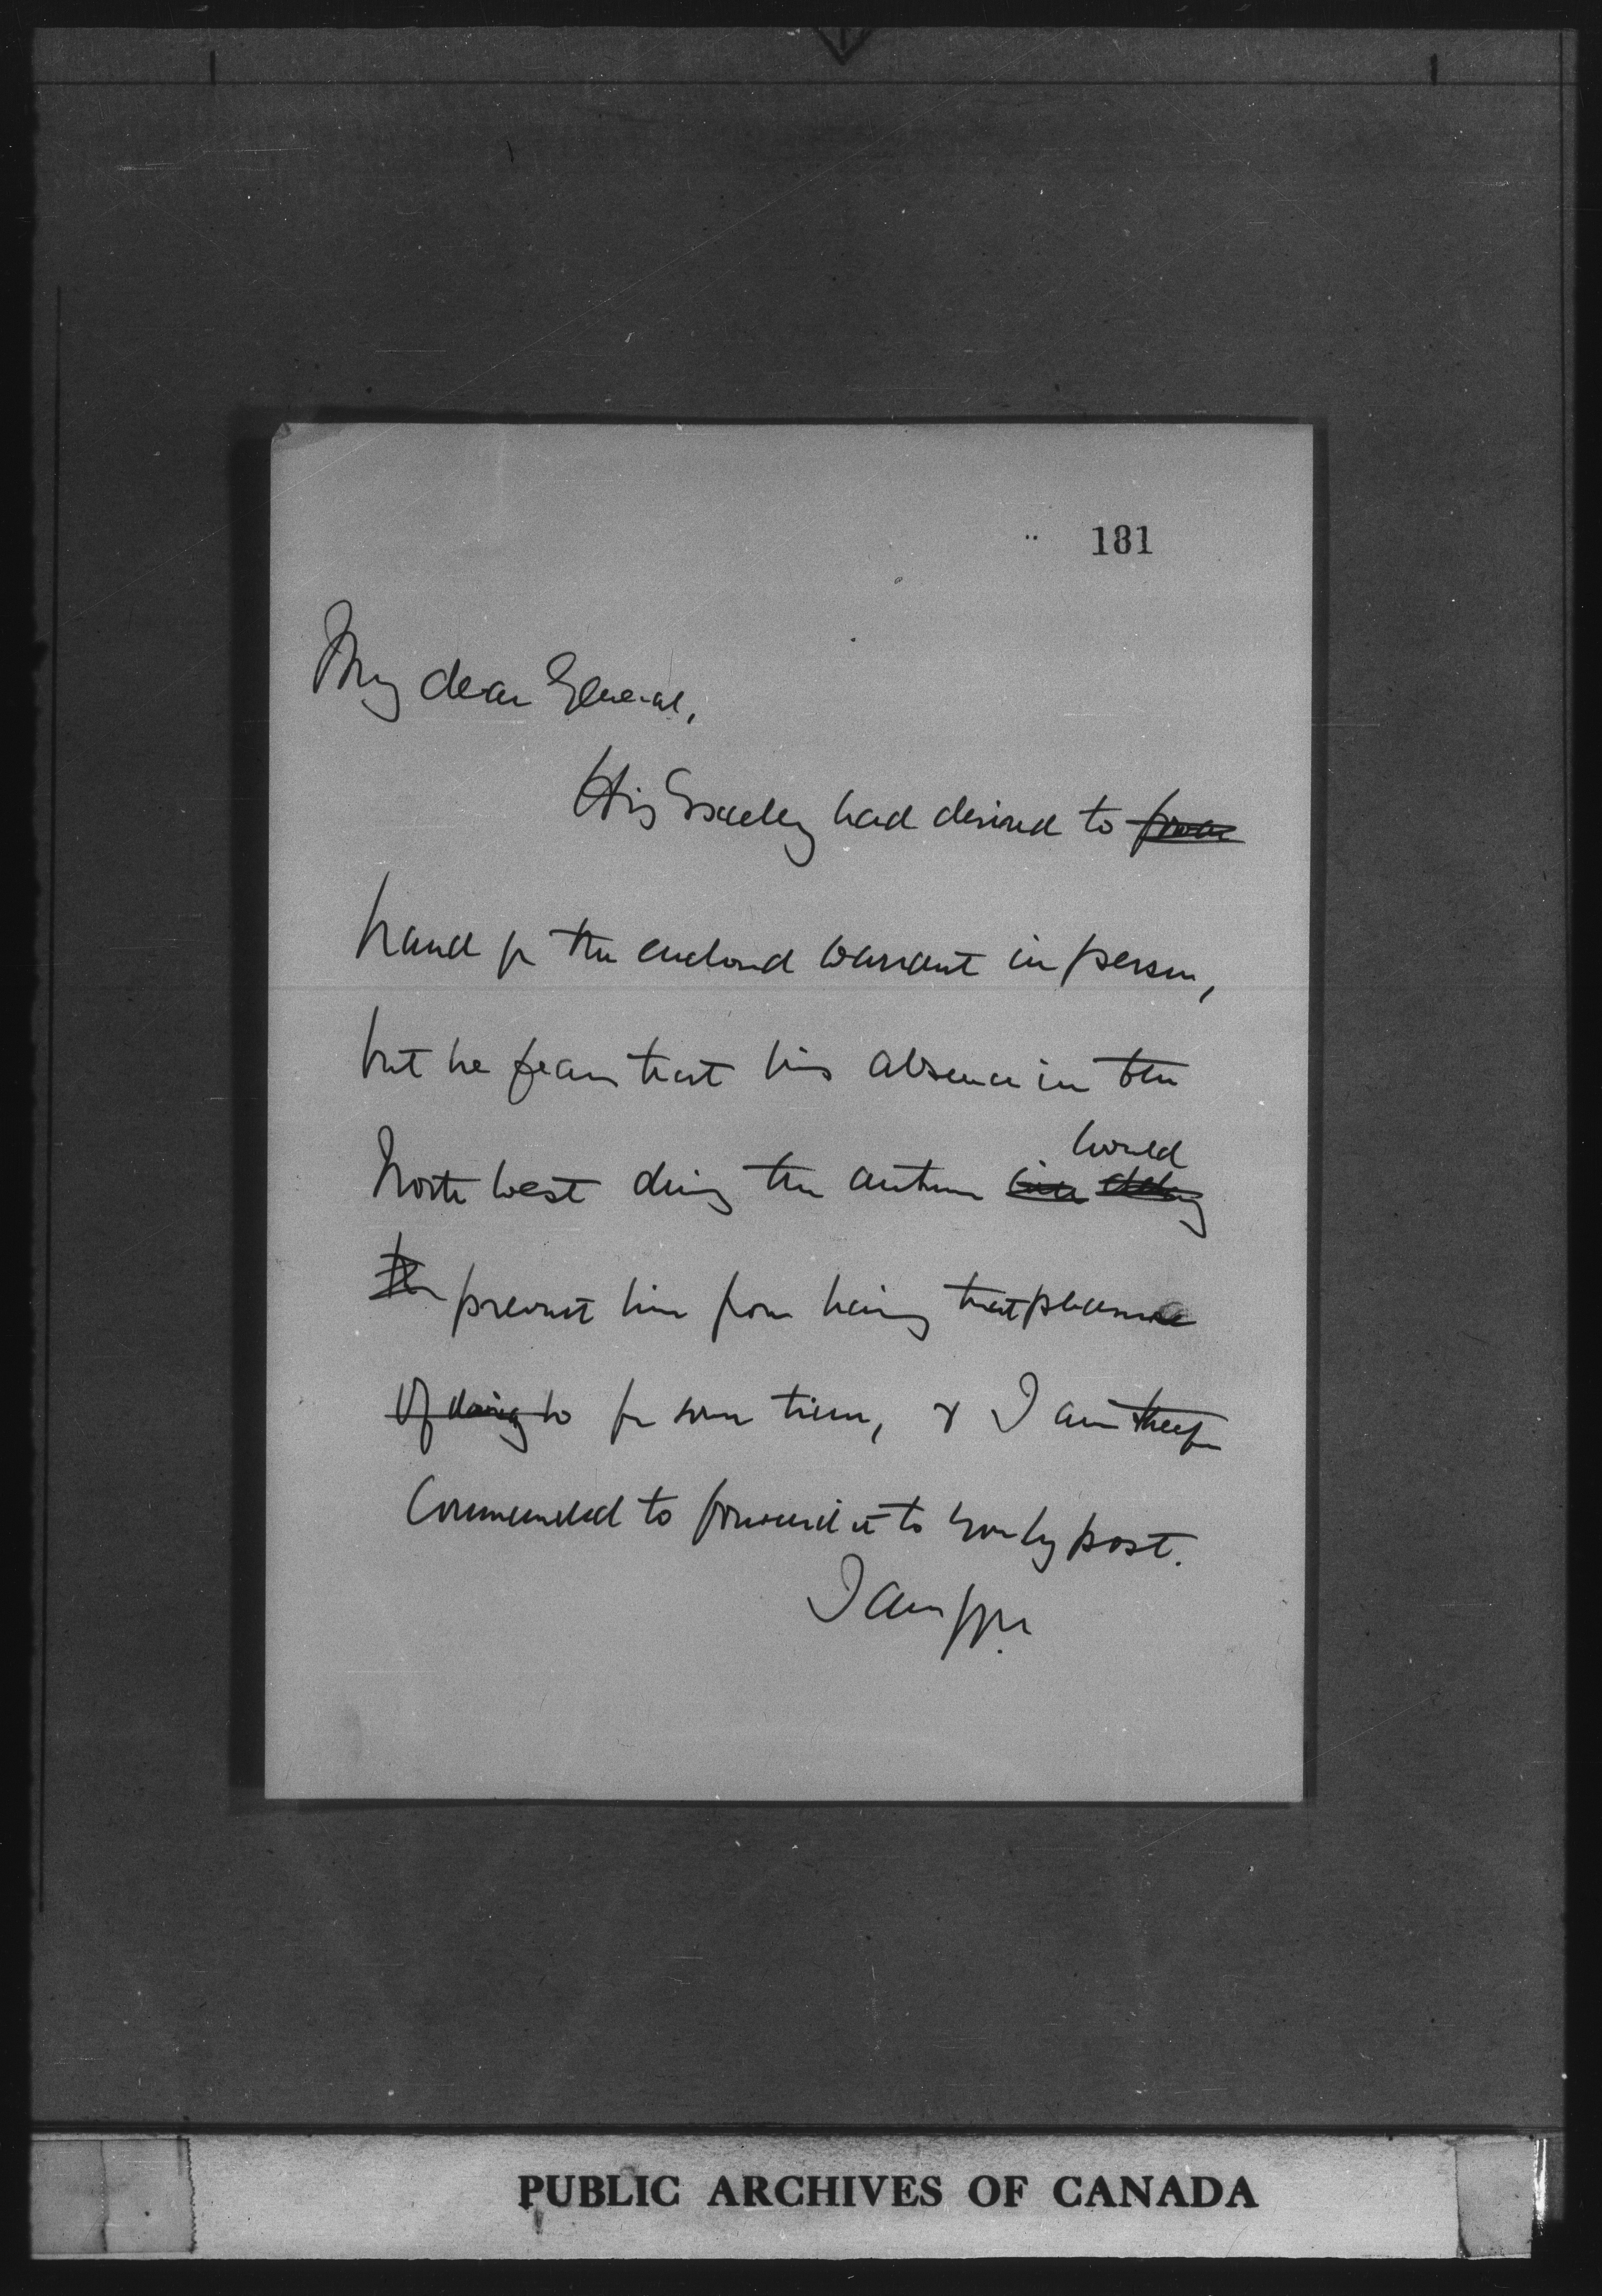 181
My dear General,
His Excellency had desired to
hand you the enclosed warrant in person,
but he fears that his absence in the
would
North West during the autumn
the prevent him from having that pleasure
of doing so for some time, & I am therefore
Commanded to forward it to you by post.
I am
PUBLIC ARCHIVES OF CANADA